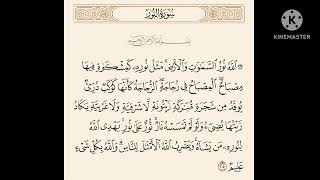 سُورَةُ النُّورِ
KINEMASTER
۞ ٱللَّهُ نُورُ ٱلسَّمَٰوَٰتِ وَٱلْأَرْضِ مَثَلُ نُورِهِۦ كَمِشْكَوٰةٍ فِيهَا
مِصْبَاحٌ ٱلْمِصْبَاحُ فِى زُجَاجَةٍ ٱلزُّجَاجَةُ كَأَنَّهَا كَوْكَبٌ دُرِّىٌّ
يُوقَدُ مِن شَجَرَةٍ مُّبَٰرَكَةٍ زَيْتُونَةٍ لَّا شَرْقِيَّةٍ وَلَا غَرْبِيَّةٍ يَكَادُ
زَيْتُهَا يُضِىٓءُ وَلَوْ لَمْ تَمْسَسْهُ نَارٌ نُّورٌ عَلَىٰ نُورٍ يَهْدِى ٱللَّهُ
لِنُورِهِۦ مَن يَشَآءُ وَيَضْرِبُ ٱللَّهُ ٱلْأَمْثَٰلَ لِلنَّاسِ وَٱللَّهُ بِكُلِّ شَىْءٍ
عَلِيمٌ ٣٥